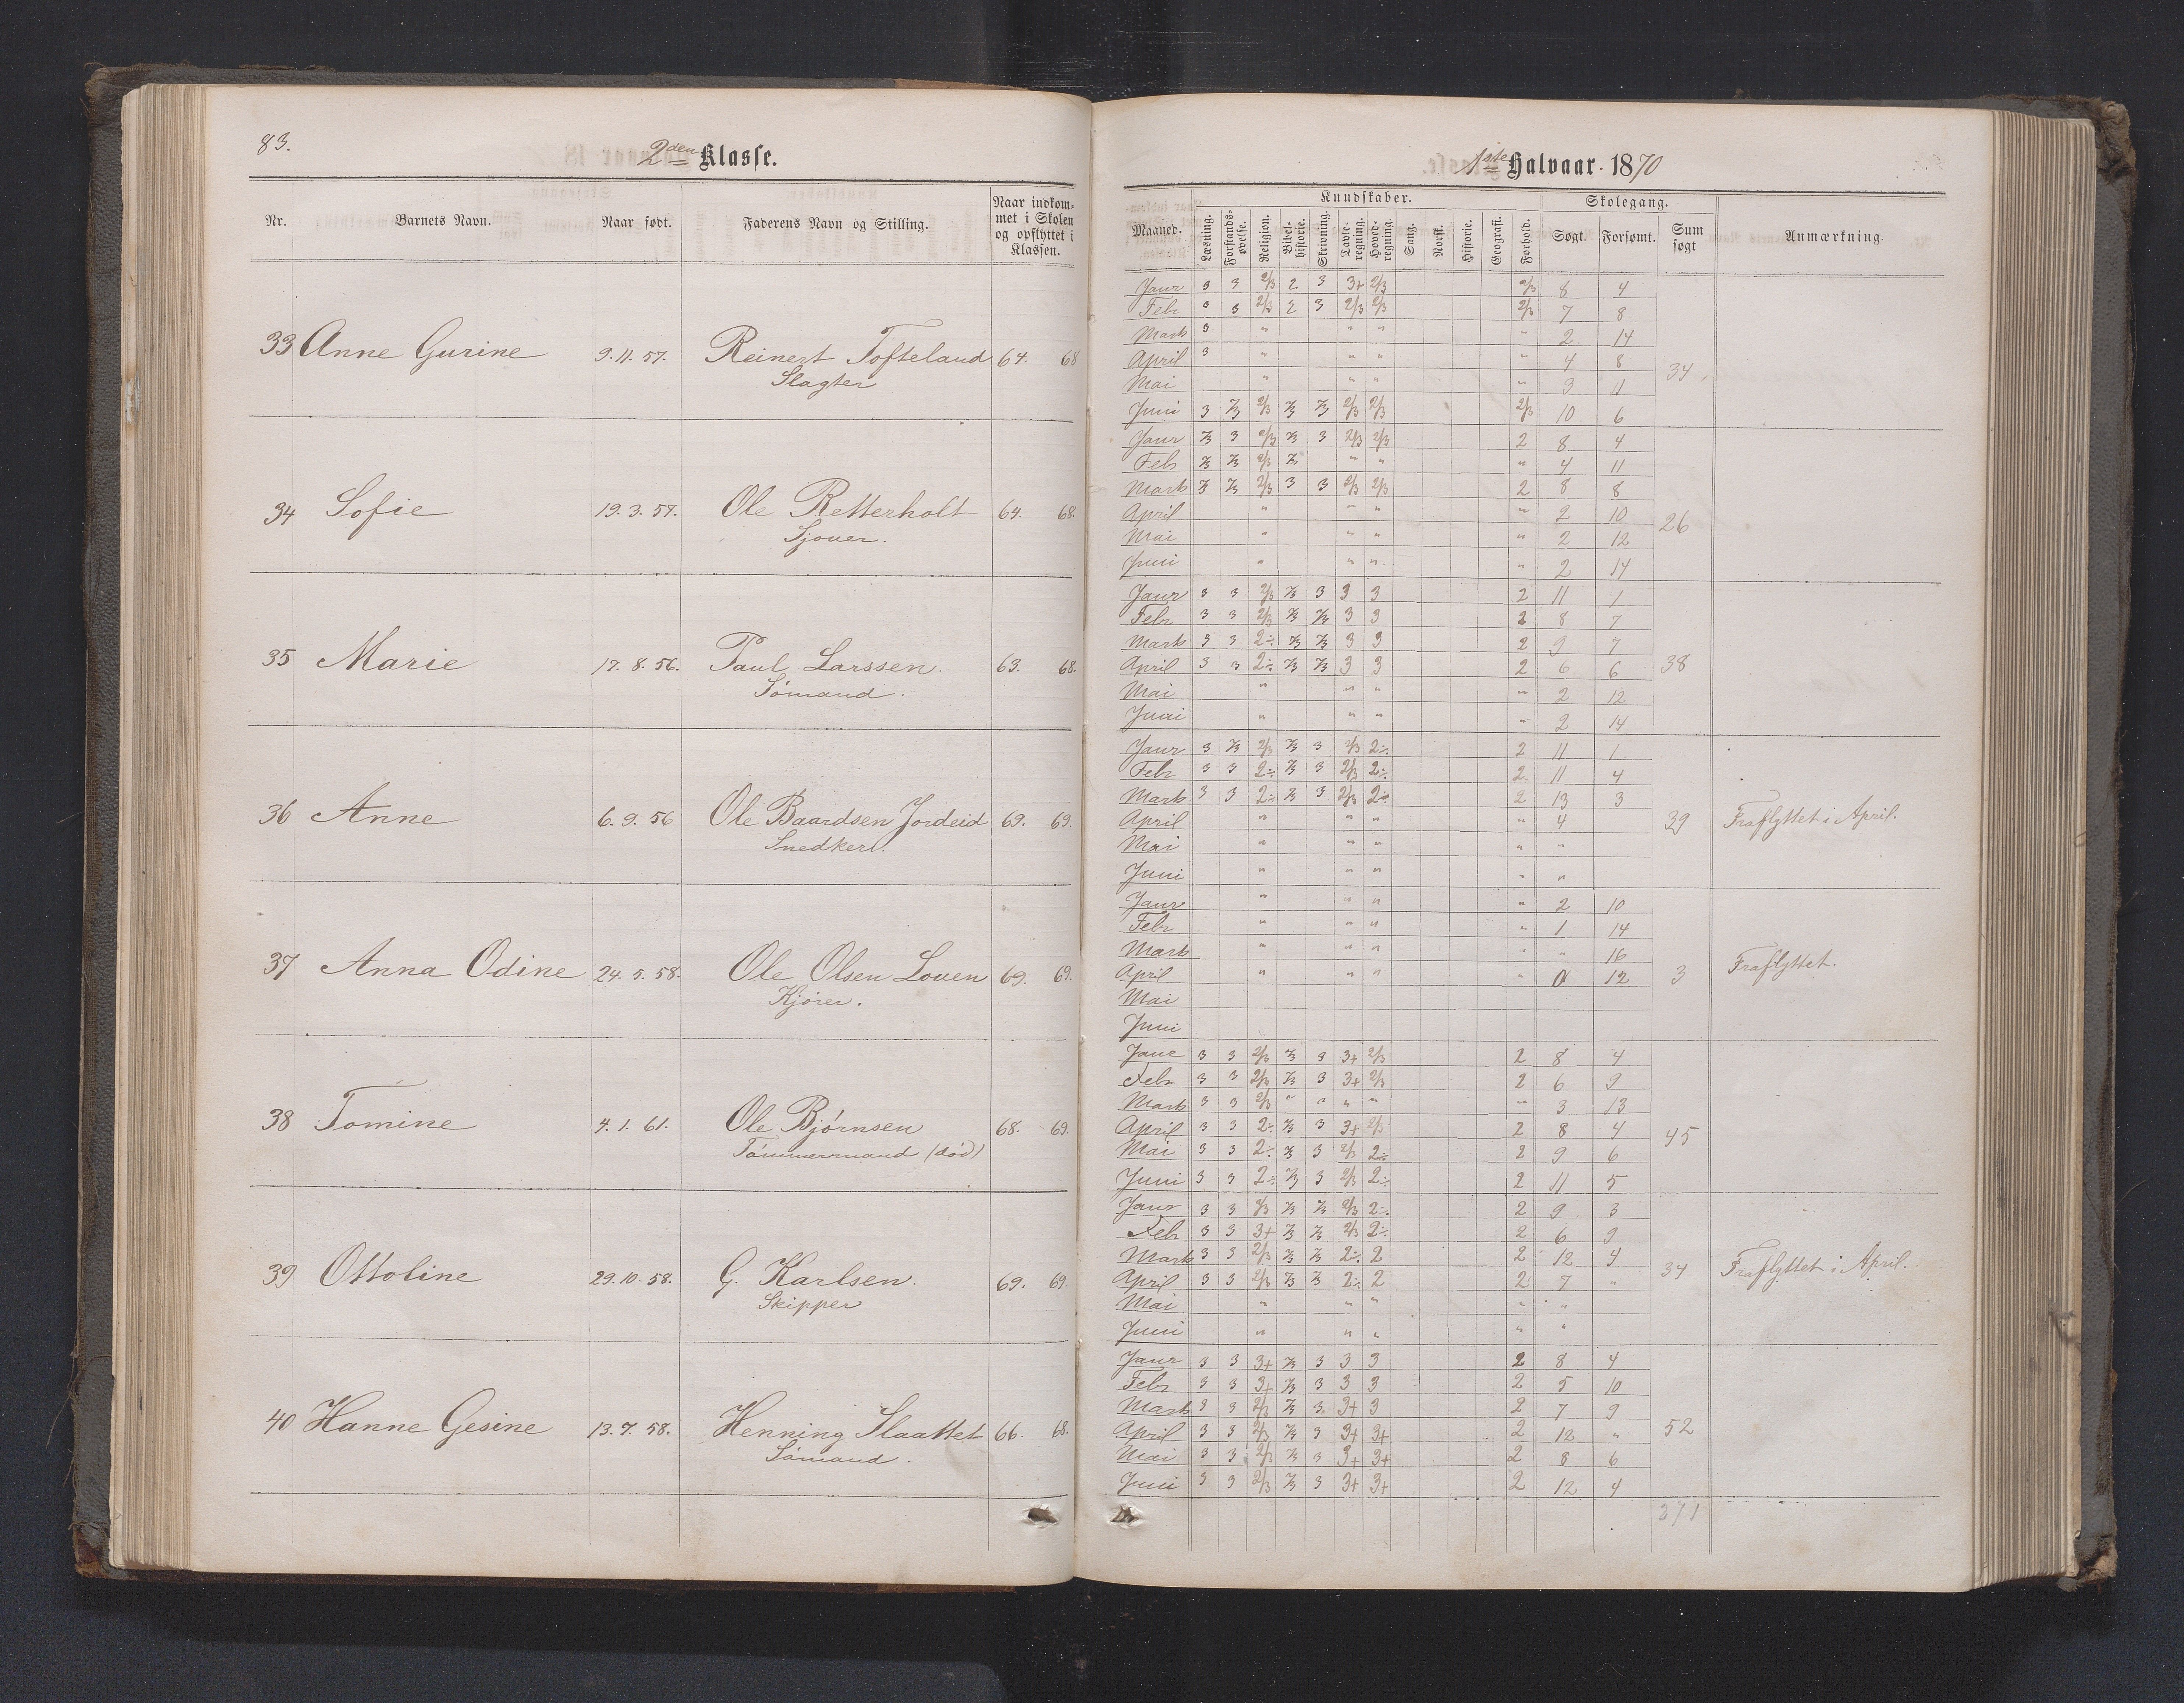 83.
2den Klasse.
Nr.
Barnets Navn.
Naar født.
Faderens Navn og Stilling.
Naar indkom-
met i Skolen
og opflyttet i
Klassen.
33 Anne Gurine 9.11.57. Reinert Tofteland 64. 68
Slagter
34 Sofie 19.3.57. Ole Retterholt 64. 68.
Sjouer.
35 Marie 17.8.56. Paul Larssen. 63. 68.
Sømand.
36 Anne 6.9.56 Ole Baardsen Jordeid 69. 69.
Snedker.
37 Anna Odine 24.5.58. Ole Olsen Louen 69. 69.
Kjører.
38 Tomine 4.1.61. Ole Bjørnsen 68. 69.
Tømmermand (død)
39 Ottoline 29.10.58. G. Karlsen. 69. 69.
Skipper
40 Hanne Gesine 13.7.58. Henning Slaattet 66. 68.
Sømand.
1ste Halvaar 1870
Kundskaber.
Skolegang.
Maaned.
Læsning.
Forstands-
øvelse.
Religion.
Bibel-
historie.
Skrivning.
Tavle-
regning.
Hoved-
regning.
Sang.
Norsk.
Historie.
Geografi.
Forhold.
Søgt.
Forsømt.
Sum
søgt
Anmærkning.
Janr 3 3 2/3 2 3 3+ 2/3 2/3 8 4
Febr 3 3 2/3 2 3 2/3 2/3 2/3 7 8
Marts 3 " " " " 2 14
April 3 " " " " 4 8
34
Mai " " " " 3 11
Juni 3 2/3 2/3 2/3 2/3 2/3 2/3 2/3 10 6
Janr 2/3 3 2/3 2/3 3 2/3 2/3 2 8 4
Feb 2/3 2/3 2/3 2/3 " " " 4 11
Marts 2/3 2/3 2/3 3 3 2/3 2/3 2 8 8
April " " " " 2 10
26
Mai " " " " 2 12
Juni " " " " 2 14
Janr 3 3 2/3 2/3 3 3 3 2 11 1
Febr 3 3 2/3 2/3 2/3 3 3 2 8 7
Marts 3 3 2÷ 2/3 2/3 3 3 2 9 7
April 3 3 2÷ 2/3 2/3 3 3 2 6 6
38
Mai " " " " 2 12
Juni " " " " 2 14
Janr 3 2/3 2/3 2/3 3 2/3 2÷ 2 11 1
Febr 3 3 2÷ 2/3 3 2/3 2÷ 2 11 4
Marts 3 3 2÷ 2/3 3 2/3 2÷ 2 13 3
April " " " " 4
39 Fraflyttet i April.
Mai " " " " "
Juni " " " " "
Janr " " " " 2 10
Febr " " " " 1 14
Marts " " " " " 16
April " " " " 0 12
3 Fraflyttet.
Mai
Juni
Janr 3 3 2/3 2/3 3 3+ 2/3 2 8 4
Febr 3 3 2/3 2/3 3 3+ 2/3 2 6 9
Marts 3 3 2/3 " " " " " 3 13
April 3 3 2÷ 2/3 3 3+ 2/3 2 8 4
45
Mai 3 3 2÷ 2/3 3 2/3 2÷ 2 9 6
Juni 3 3 2÷ 2/3 3 2/3 2÷ 2 11 5
Janr 3 3 2/3 2/3 2/3 2/3 2÷ 2 9 3
Feb 3 3 3+ 2/3 2/3 2/3 2÷ 2 6 9
Marts 3 3 2/3 2/3 2/3 2÷ 2 2 12 4
April 3 3 2/3 2/3 2/3 2÷ 2 2 7 "
34 Fraflyttet i April.
Mai " " " " "
Juni " " " " "
Janr 3 3 3+ 2/3 3 3 3 2 8 4
Febr 3 3 3+ 2/3 3 3 3 2 5 10
Marts 3 3 2/3 2/3 3 3+ 3 2 7 9
April 3 3 2/3 2/3 3 3+ 3+ 2 12 "
52
Mai 3 3 2/3 2/3 3 3+ 3+ 2 8 6
Juni 3 3 2/3 2/3 3 3+ 3+ 2 12 4
371